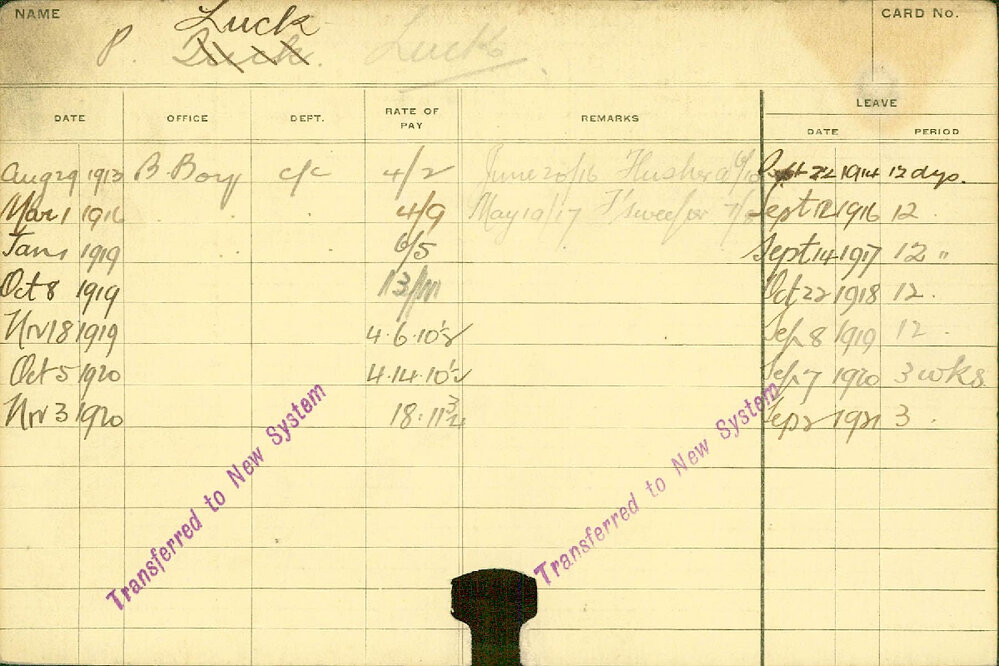 NAME
Luck
CARD No.
P. Duck. Luck
DATE OFFICE DEPT. RATE OF PAY REMARKS LEAVE
DATE PERIOD
Aug 29 1913 B. Boy c/c 4/2 June 20/16 Sept 22 1914 12 dys.
Mar 1 1916 4/9 May 19/17 Sept 12 1916 12
Jan 1 1919 6/5 Sept 14 1917 12 "
Oct 8 1919 13/m Oct 22 1918 12.
Nov 18 1919 4.6.10½ Sep 8 1919 12.
Oct 5 1920 4.14.10½ Sep 7 1920 3 wks.
Nov 3 1920 18.11¾ Sep 2 1921 3.
Transferred to New System
Transferred to New System